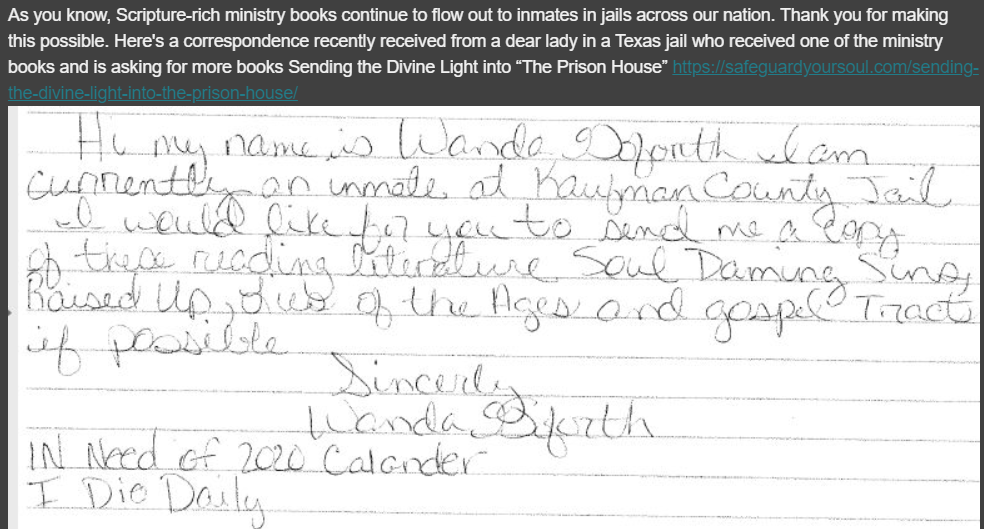 As you know, Scripture-rich ministry books continue to flow out to inmates in jails across our nation. Thank you for making
this possible. Here's a correspondence recently received from a dear lady in a Texas jail who received one of the ministry
books and is asking for more books Sending the Divine Light into “The Prison House” https://safeguardyoursoul.com/sending-
the-divine-light-into-the-prison-house/
Hi my name is Wanda I am
currently an inmate at Kaufman County Jail
I would like for you to send me a copy
of these reading literature Soul Daming Sins,
Raised Up, of the Ages and gospel Tracts
if possible
Sincerly
Wanda
IN Need of 2020 Calander
I Die Daily